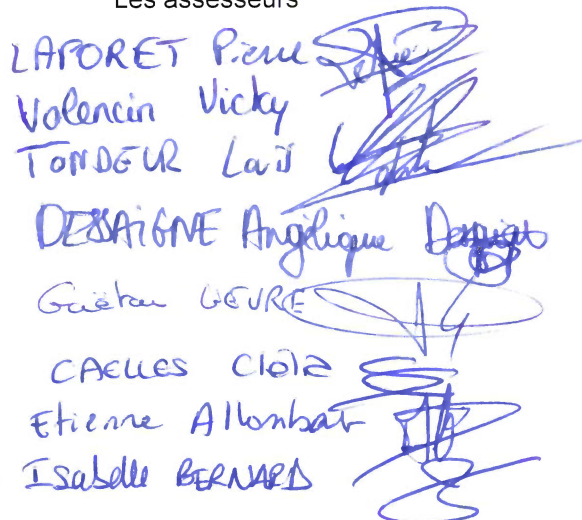 Les assesseurs
LAPORET Pierre
Volencin Vicky
TONDEUR Laïs
DESSAIGNE Angélique
Gaëtan LIEVRE
CAELLES Cloïz
Etienne Allombat
Isabelle BERNARD